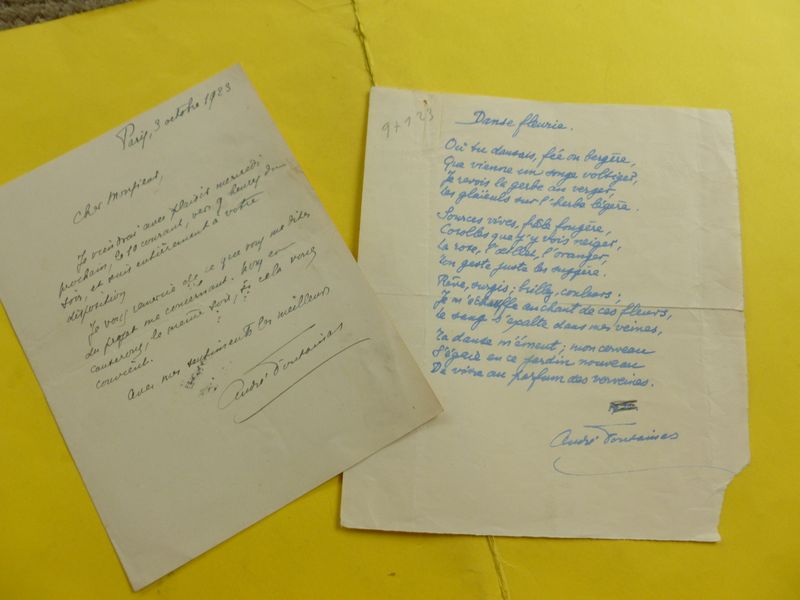 Paris, 3 octobre 1923
Cher Monsieur,
Je viendrai avec plaisir mercredi
prochain, le 10 courant, vers 9 heures du
soir, et suis entièrement à votre
disposition.
Je vous remercie de ce que vous me dites
du projet me concernant. Nous en
causerons, le même soir, si cela vous
convient.
Avec mes sentiments les meilleurs
André Fontainas
9+123
Danse fleurie.
Où tu dansais, fée ou bergère,
Que vienne un songe voltiger,
Je revois la gerbe au verger,
Les glaïeuls sur l'herbe légère.
Sources vives, frêle fougère,
Corolles que j'y vois neiger,
La rose, l'œillet, l'oranger,
Ton geste juste les suggère.
Rêve, surgis; brillez, couleurs;
Je m'échauffe au chant de ces fleurs,
Le sang s'exalte dans mes veines,
Ta danse m'émeut; mon cerveau
S'égaie en ce jardin nouveau
De vivre au parfum des verveines.
André Fontainas